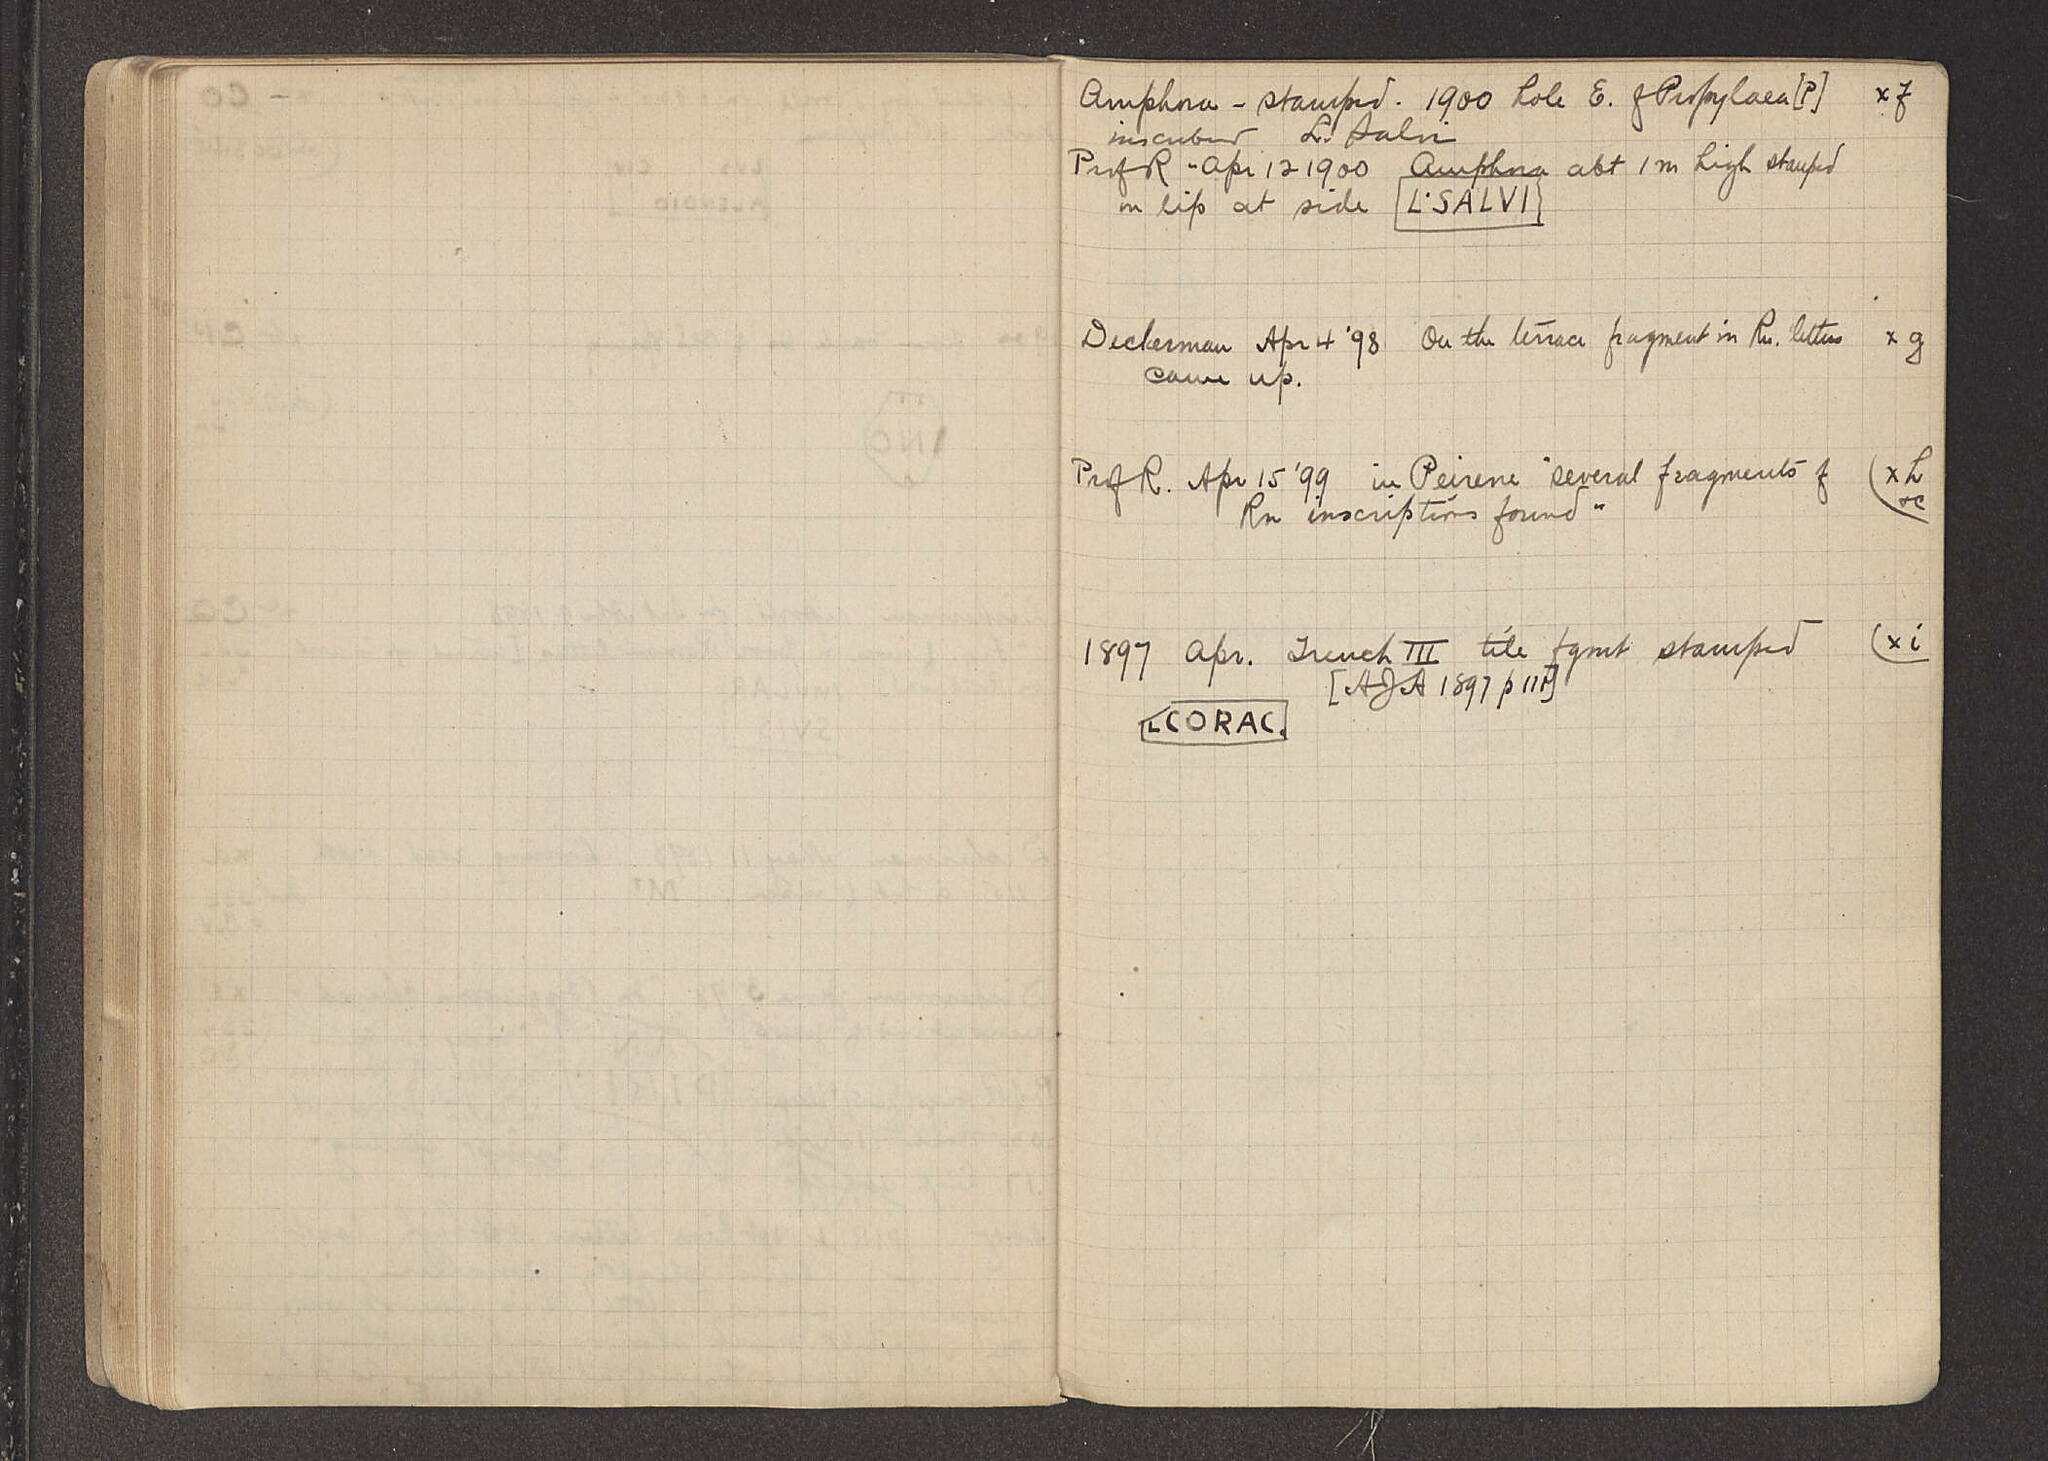 Amphora - stamped. 1900 hole E. of Propylaea [P] x f
inscribed L. Salvi
Prof R - Apr 12 1900 Amphora abt 1 m high stamped
on lip at side [L·SALVI]
Dickerman Apr 4 '98 On the terrace fragment in Rn. letters x g
came up.
Prof R. Apr 15 '99 in Peirene "several fragments of (x h
Rn inscriptions found"
1897 Apr. Trench III tile fgmt stamped (x i
[AJA 1897 p 111]
LCORAC.